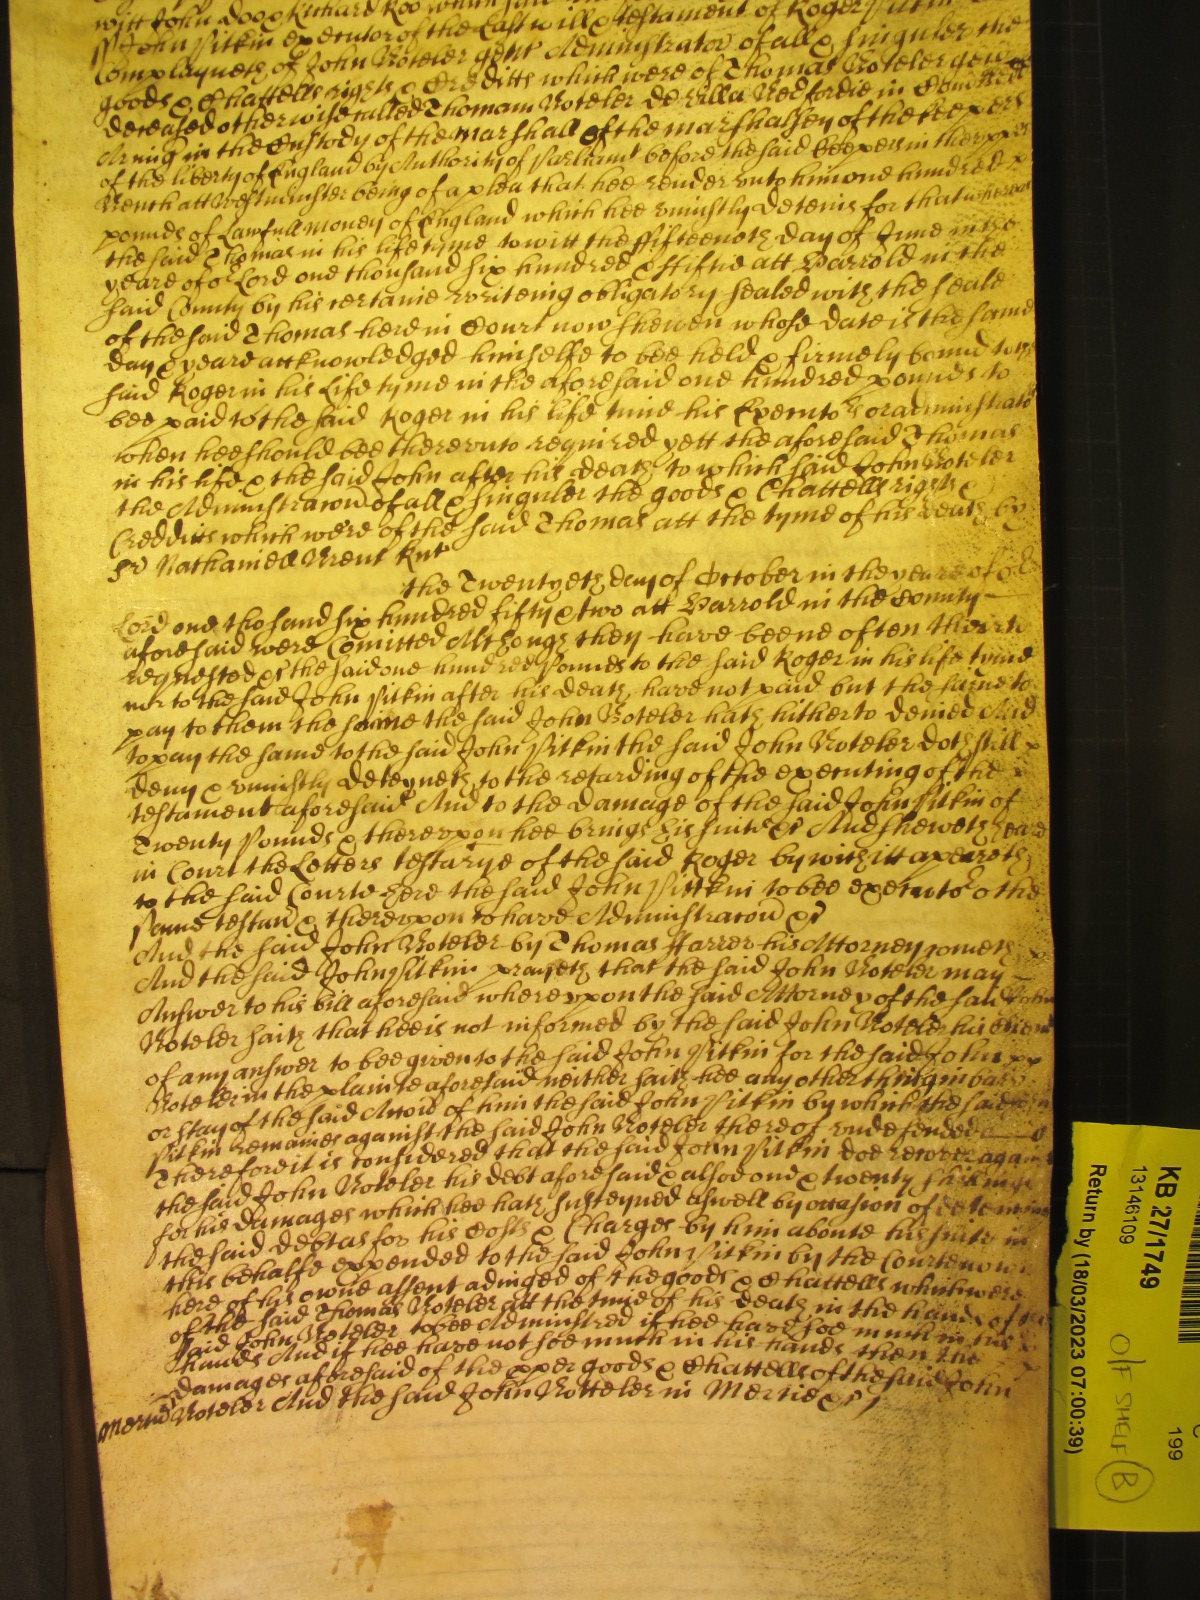 witt John Doo & Richard Roo which said
John Pitkin executor of the Last will & testament of Roger Pitkin
Complayneth of John Boteler gent Administrator of all & singuler the
goods & Chattells rights & Creditts which were of Thomas Boteler gent
deceased otherwise called Thomam Boteler de villa Bedfordie in Comittee
Armig in the Custody of the Marshall of the marshalsey of the keepers
of the liberty of England by Authority of Parliamt before the said keepers in the upper
Bench att Westminster being of a plea that hee render unto him one hundred
pounds of Lawfull money of England which hee uniustly deteins for that whereas
the said Thomas in his life tyme to witt the fifteenth day of June in the
yeare of or Lord one thousand six hundred & fiftie att Harrold in the
said County by his certaine writeing obligatory sealed with the seale
of the said Thomas here in Court now shewen whose date is the same
day & yeare acknowledged himselfe to bee held & firmely bound to the
said Roger in his Life tyme in the aforesaid one hundred pounds to
bee paid to the said Roger in his life time his Executors or administrators
when hee should bee thereunto required yett the aforesaid Thomas
in his life & the said John after his death to which said John Boteler
the Administracon of all & singuler the goods & Chattells rights &
Creddits which were of the said Thomas att the tyme of his death by
Sr Nathaniell Brent Knt
the Twentyeth day of October in the yeare of or
Lord one thosand six hundred fifty & two att Harrold in the County
aforesaid were Comitted Although they have beene often therto
requested &c the said one hundred Pounds to the said Roger in his life tyme
nor to the said John Pitkin after his death have not paid but the same to
pay to them the same the said John Boteler hath hitherto denied And
to pay the same to the said John Pitkin the said John Boteler doth still
deny & uniustly deteyneth to the retarding of the executing of the
testament aforesaid And to the damage of the said John Pitkin of
Twenty Pounds & thereupon hee brings his suite &c And sheweth heare
in Court the Letters testarye of the said Roger by with itt apeareth
to the said Courte here the said John Pittkin to bee executor o the
same testam & thereupon to have Administracon &c
And the said John Boteler by Thomas Farrer his Attorney cometh
And the said John Pitkin prayeth that the said John Boteler may
Answer to his bill aforesaid whereupon the said Attorney of the said John
Boteler saith that hee is not informed by the said John Boteler his Client
of any answer to bee given to the said John Pitkin for the said John
Boteler in the plainte aforesaid neither saith hee any other thing in barr
or stay of the said Accon of him the said John Pitkin by which the said John
Pitkin remaines against the said John Boteler thereof undefended
Therefore it is considered that the said John Pitkin doe recover against
the said John Boteler his debt aforesaid & alsoe one & twenty shillings
for his damages which hee hath susteyned aswell by occasion of deteining
the said debt as for his Costs & Charges by him aboute his suite in
this behalfe expended to the said John Pitkin by the Courte now
here of his owne assent adiuged of the goods & Chattells which were
of the said Thomas Boteler att the tyme of his death in the hands of the
said John Boteler to bee Administred if hee have soe much in his
hands And if hee have not soe much in his hands then the
damages aforesaid of the xper goods & Chattells of the said John
Boteler And the said John Botteler in Mercie &c
Mercie
KB 27/1749
13146109
Return by (18/03/2023 07:00:39)
199
O/F SHELF B